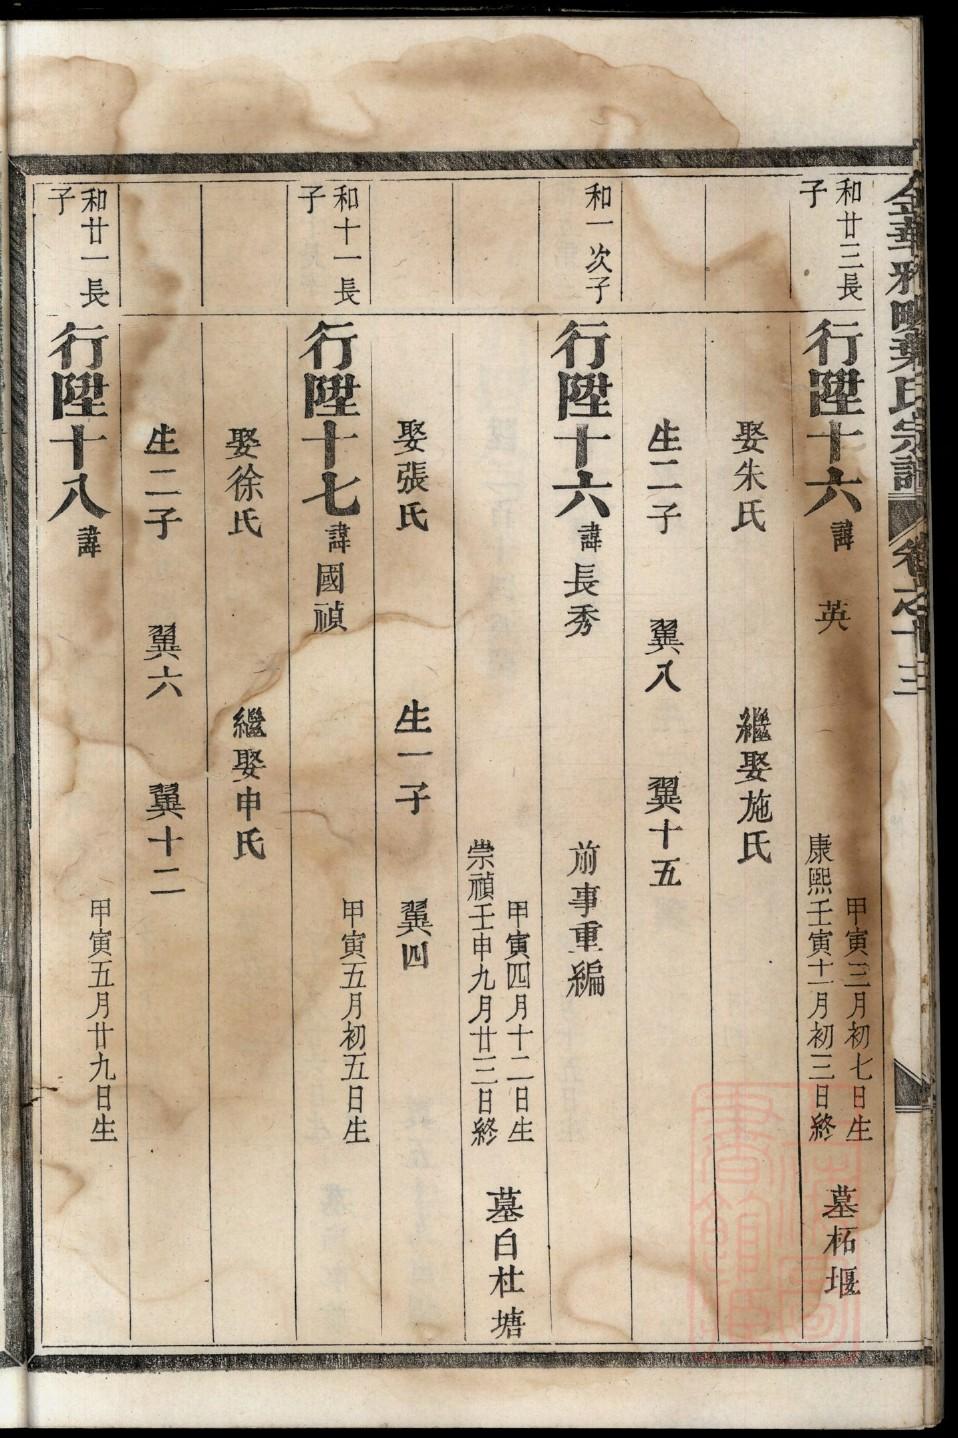 金華雅畈葉氏宗譜 卷之十三
和廿三長子
行陞十六 諱 英 甲寅三月初七日生 康熙壬寅十一月初三日終 墓柘堰
娶朱氏 繼娶施氏
生二子 翼八 翼十五
和一次子
行陞十六 諱長秀 前事重編
甲寅四月十二日生 崇禎壬申九月廿三日終 墓白杜塘
娶張氏 生一子 翼四
和十一長子
行陞十七 諱國禎 甲寅五月初五日生
娶徐氏 繼娶申氏
生二子 翼六 翼十二
和廿一長子
行陞十八 諱 甲寅五月廿九日生